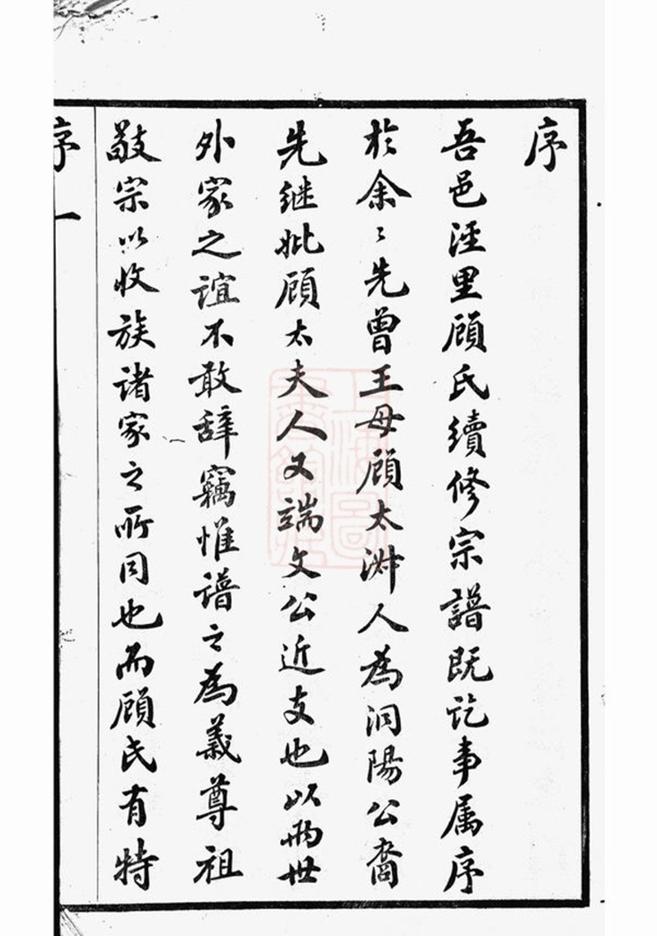 序
吾邑涇里顧氏續修宗譜既訖事属序
於余〻先曾王母顧太淑人為洞陽公裔
先继妣顾太夫人又端文公近支也以兩世
外家之誼不敢辞竊惟譜之為義尊祖
敬宗以收族诸家之所同也而顾氏有特
序一
上海圖書館藏